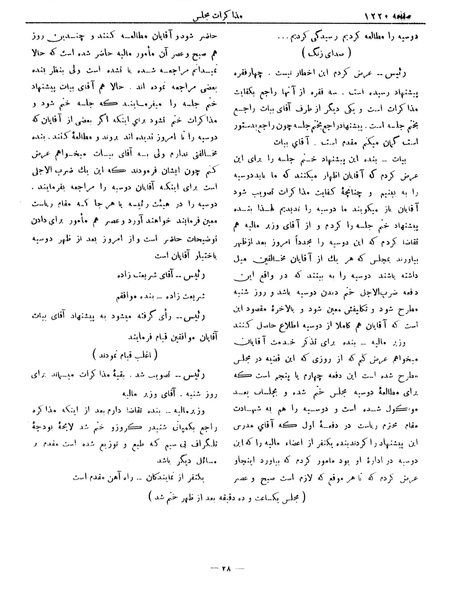 صفحه ۱۲۲۰
مذاکرات مجلس
دوسیه را مطالعه کردیم رسیدگی کردیم...
( صدای زنگ )
رئیس ـ عرض کردم این اخطار نیست . چهار فقره
پیشنهاد رسیده است . سه فقره از آنها راجع بکفایت
مذاکرات است و یکی دیگر از طرف آقای بیات راجع
بختم جلسه است . پیشنهاد راجع بختم جلسه چون راجع بدستور
است گمان میکنم مقدم است . آقای بیات
بیات ـ بنده این پیشنهاد ختم جلسه را برای این
عرض کردم که آقایان اظهار میکنند که ما باید دوسیه
را به بینیم و چنانچه کفایت مذاکرات تصویب شود
آقایان باز میگویند ما دوسیه را ندیدیم لهذا بنده
ختم جلسه را پیشنهاد کردم و از آقای وزیر مالیه هم
تقاضا کردم که این دوسیه را مجدداً امروز بعد از ظهر
بیاورند بمجلس که هر یك از آقایان مخالفین میل
داشته باشند دوسیه را به بینند که در واقع این
دفعه ضرب‌الاجل ختم دیدن دوسیه باشد و روز شنبه
مطرح شود و تکلیفش معین شود و بالاخره مقصود این
است که آقایان هم کاملا از دوسیه اطلاع حاصل کنند
وزیر مالیه ـ بنده برای تذکر خدمت آقایان
میخواهم عرض کنم که از روزی که این قضیه در مجلس
مطرح شده است این دفعه چهارم یا پنجم است که
برای مطالعهٔ دوسیه مجلس ختم شده و بجلسات بعد
موکول شده است و دوسیه را هم به شهادت
مقام محترم ریاست در دفعهٔ اول که آقای مدرس
این پیشنهاد را کردند بنده یکنفر از اعضاء مالیه را که این
دوسیه در ادارهٔ او بود مامور کردم که بیاورد اینجا و
عرض کردم که تا هر موقع که لازم است صبح و عصر
حاضر شود و آقایان مطالعه کنند و چندین روز
هم صبح و عصر آن مأمور مالیه حاضر شده است که حالا
نمیدانم مراجعه شده یا نشده است ولی بنظر بنده
بعضی مراجعه نموده اند . حالا هم آقای بیات پیشنهاد
ختم جلسه را میفرمایند که جلسه ختم شود و
مذاکرات ختم نشود برای اینکه اگر بعضی از آقایان که
دوسیه را تا امروز ندیده اند بروند و مطالعهٔ کنند . بنده
مخالفتی ندارم ولی به آقای بیات میخواهم عرض
کنم چون ایشان فرمودند که این یك ضرب الاجلی
است برای اینکه آقایان دوسیه را مراجعه بفرمایند .
دوسیه را در هیئت رئیسه یا هر جا که مقام ریاست
معین فرمایند خواهند آورد و عضو هم مأمور برای دادن
توضیحات حاضر است و از امروز بعد از ظهر دوسیه
باختیار آقایان است
رئیس ـ آقای شریعت زاده
شریعت زاده ـ بنده موافقم
رئیس ـ رأی گرفته میشود به پیشنهاد آقای بیات
آقایان موافقین قیام فرمایند
( اغلب قیام نمودند )
رئیس ـ تصویب شد . بقیهٔ مذاکرات میماند برای
روز شنبه . آقای وزیر مالیه
وزیر مالیه ـ بنده تقاضا دارم بعد از اینکه مذاکره
راجع بکمپانی شنیدر کروزو ختم شد لایحهٔ بودجهٔ
تلگراف بی سیم که طبع و توزیع شده است مقدم بر
مسائل دیگر باشد
یکنفر از نمایندگان ـ راه آهن مقدم است
( مجلس یکساعت و ده دقیقه بعد از ظهر ختم شد )
ـ ۲۸ ـ